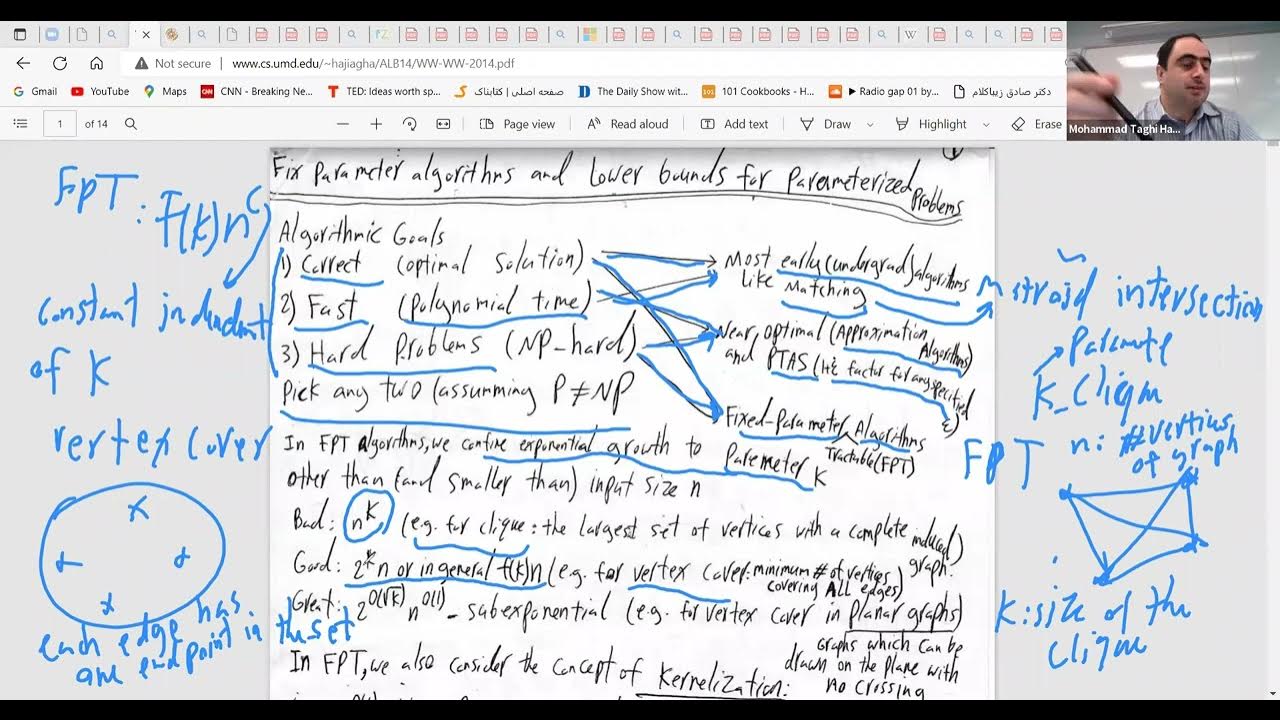 Not secure | www.cs.umd.edu/~hajiagha/ALB14/WW-WW-2014.pdf
Gmail YouTube Maps CNN - Breaking Ne... TED: Ideas worth sp... صفحه اصلی | کتابناک The Daily Show wit... 101 Cookbooks - H... Radio gap 01 by... دکتر صادق زیباکلام
1 of 14 Page view Read aloud Add text Draw Highlight Erase
Mohammad Taghi Ha...
1
Fix parameter algorithms and Lower bounds for Parameterized Problems
Algorithmic Goals
1) Correct (optimal solution)
2) Fast (polynomial time)
3) Hard Problems (NP-hard)
Pick any two (assumming P≠NP
Most early (undergrad) algorithms
Like Matching
Near optimal (Approximation Algorithms)
and PTAS (1+ε factor for any specified ε)
Fixed-Parameter Algorithms
Tractable (FPT)
In FPT algorithms, we confine exponential growth to Paremeter k
other than (and smaller than) input size n
Bad: n^k (e.g. for clique: the largest set of vertices with a complete induced graph.)
Good: 2^k n or in general f(k)n (e.g. for vertex cover: minimum # of vertices covering ALL edges)
Great: 2^O(√k) n^O(1) - subexponential (e.g. for vertex cover in planar graphs)
graphs which can be
drawn on the plane with
no crossing
In FPT, we also consider the concept of Kernelization:
FPT: f(k)n^c
constant
of k
vertex cover
each edge has
one endpoint in the set
intersection
K_Cliqu
FPT n: # vertices
of graph
K: size of the
clique